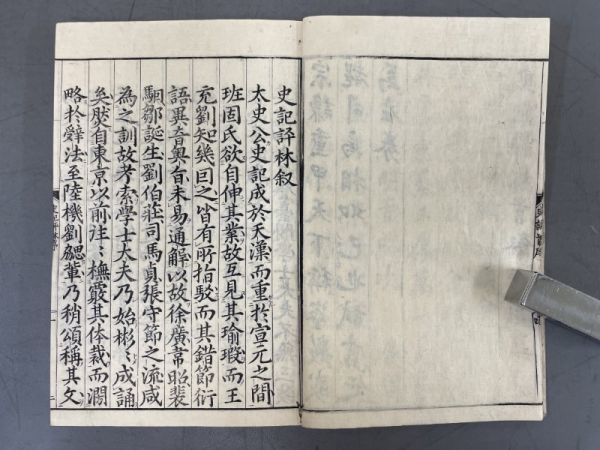 史記評林叙
太史公史記成於天漢而重於宣元之間
班固氏欲自伸其業故互見其瑜瑕而王
充劉知幾回之皆有所指駁而其錯節衍
語異音奥旨未易通觧以故徐廣韋昭裴
駰鄒誕生劉伯莊司馬貞張守節之流咸
為之訓故考索學士大夫乃始彬〻成誦
矣然自東京以前注〻橅覈其体裁而濶
略於辭法至陸機劉勰輩乃稍頌稱其文